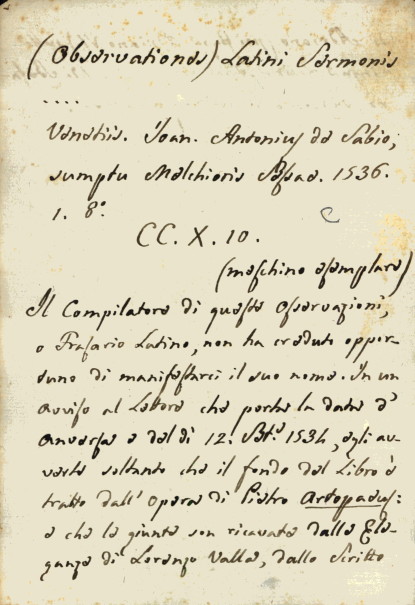 (Observationes) Latini Sermonis
....
Venetiis. Joan. Antonius de Sabio,
sumptu Melchioris Sessae. 1536.
1. 8.°
CC. X. 10.
(meschino esemplare)
Il Compilatore di queste Osservazioni,
o Frasario Latino, non ha creduto oppor-
tuno di manifestarci il suo nome. In un
Avviso al Lettore che porta la data d'
Anversa e del dì 12. Bre 1534, egli av-
verte soltanto che il fondo del Libro è
tratto dall' Opera di Pietro Artopaeus:
e che le giunte son ricavate dalle Ele-
ganze di Lorenzo Valla, dallo Scritto